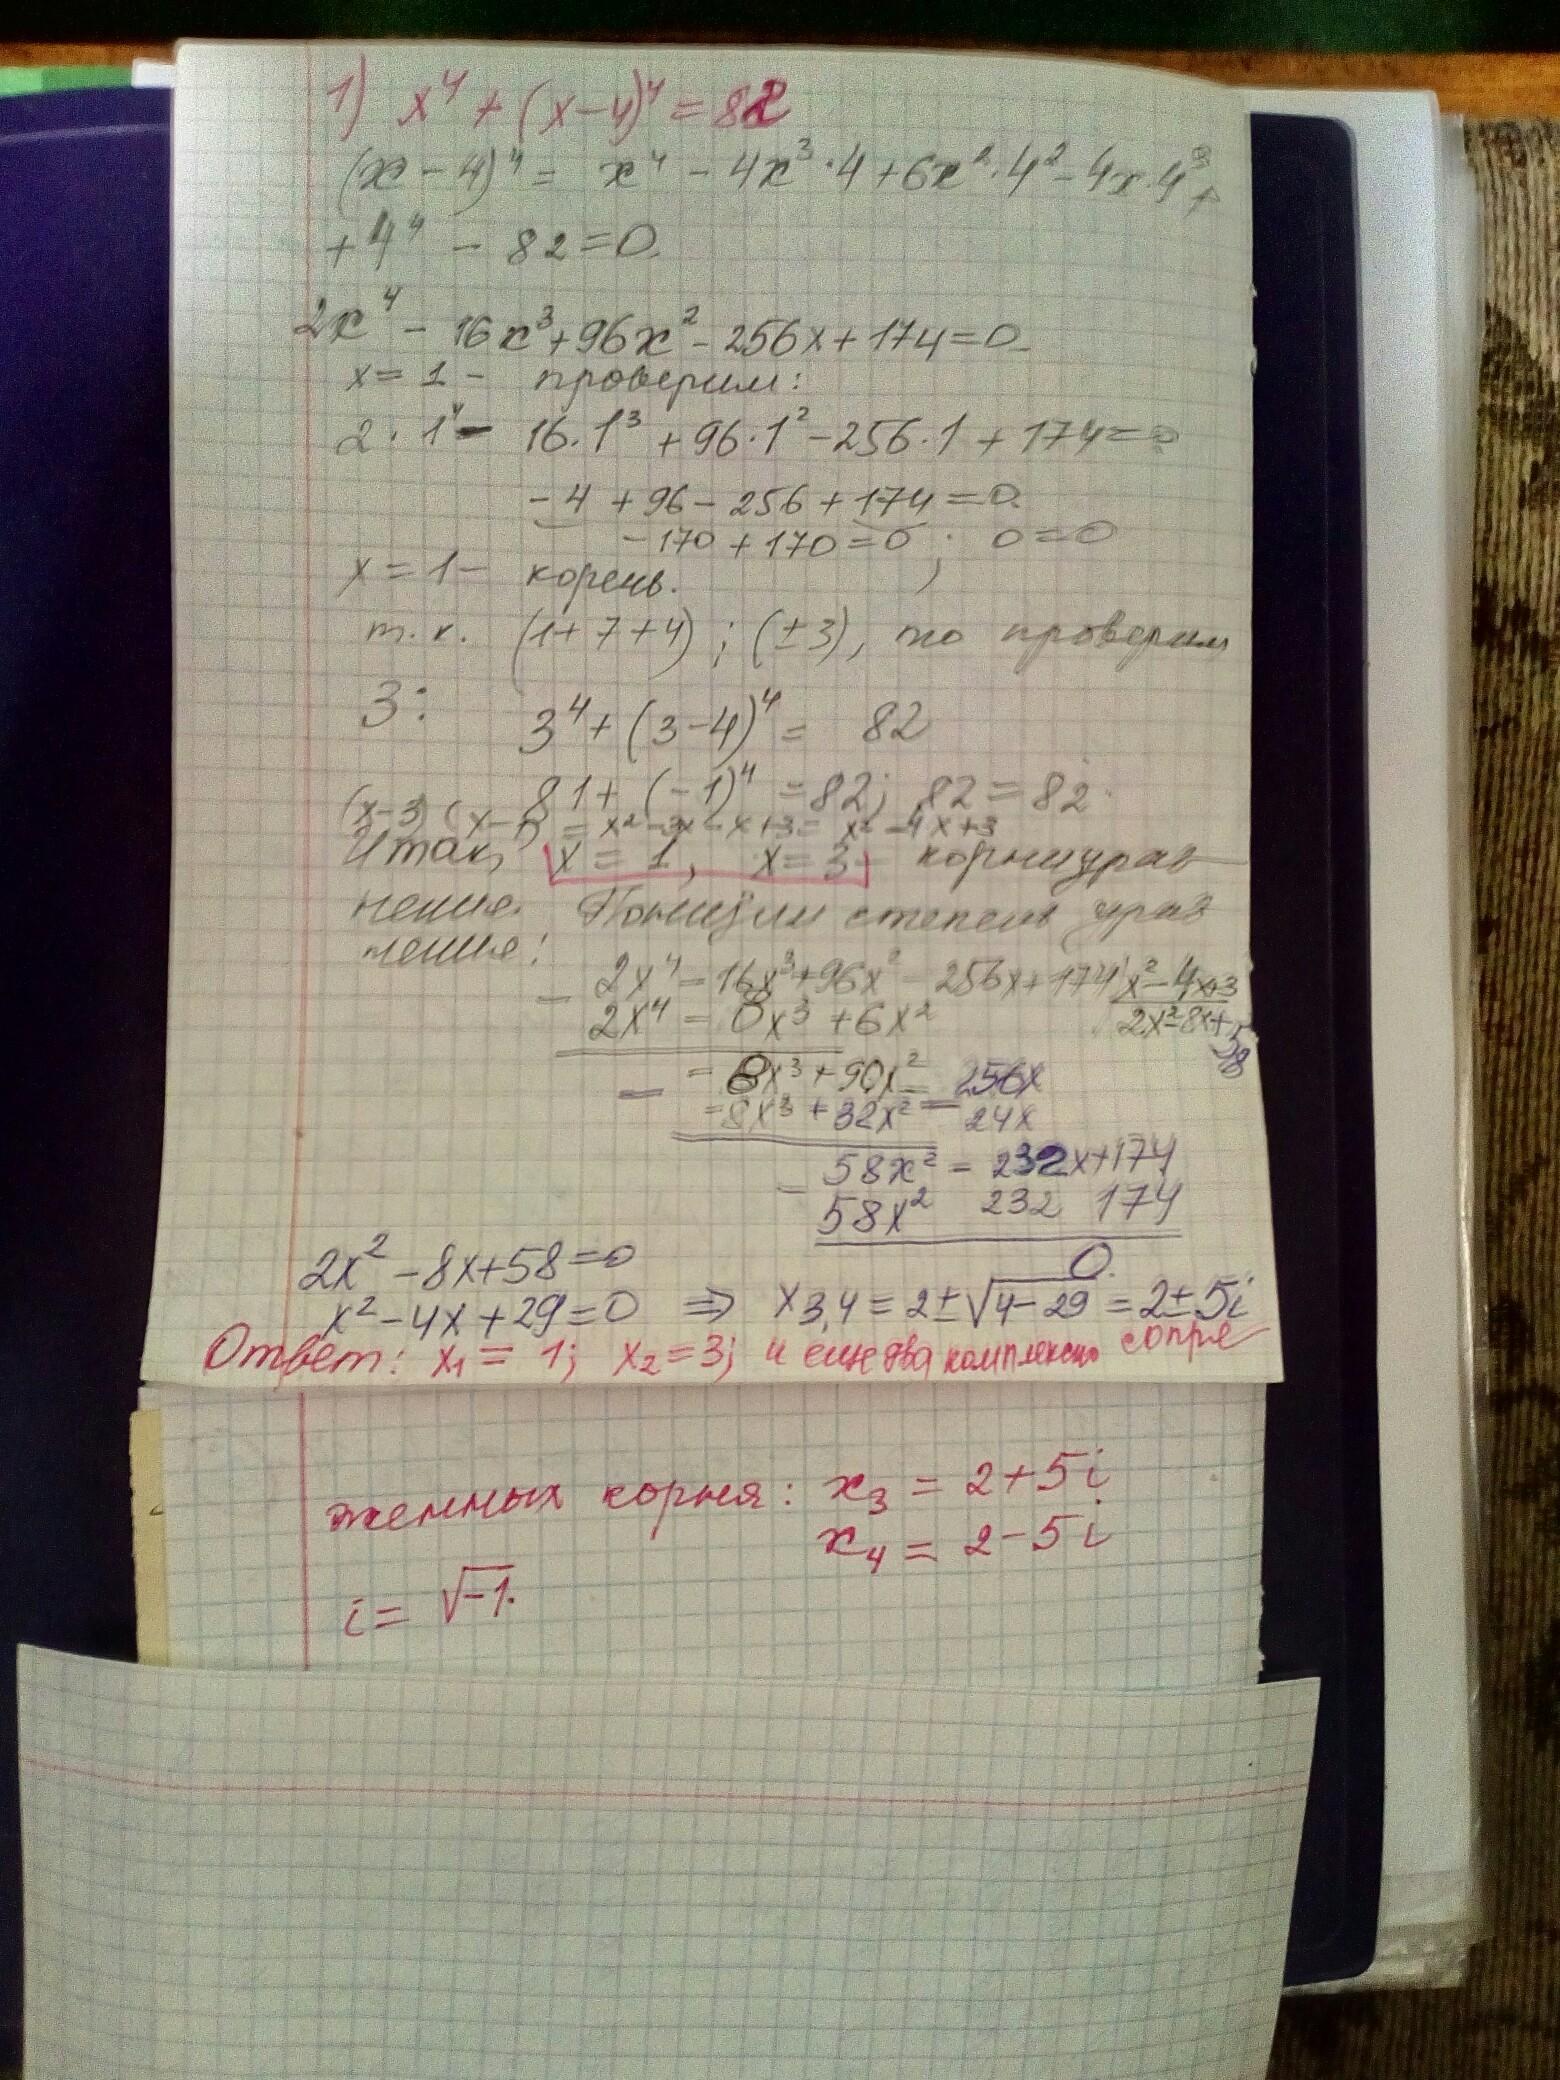 1) x⁴ + (x-4)⁴ = 82
(x - 4)⁴ = x⁴ - 4x³·4 + 6x²·4² - 4x·4³ +
+ 4⁴ - 82 = 0.
2x⁴ - 16x³ + 96x² - 256x + 174 = 0
x = 1 - проверим:
2·1⁴ - 16·1³ + 96·1² - 256·1 + 174 = 0
-4 + 96 - 256 + 174 = 0.
-170 + 170 = 0; 0 = 0
x = 1 - корень.
т.к. (1+7+4); (±3), то проверим
3: 3⁴ + (3-4)⁴ = 82
81 + (-1)⁴ = 82; 82 = 82.
(x-3)(x-1) = x² - 3x - x + 3 = x² - 4x + 3
Итак, x = 1, x = 3 корни урав
нения. Понизим степень урав
нения:
2x⁴ - 16x³ + 96x² - 256x + 174 | x² - 4x + 3
- 2x⁴ - 8x³ + 6x² 2x² - 8x + 58
- 8x³ + 90x² - 256x
- - 8x³ + 32x² - 24x
58x² - 232x + 174
- 58x² 232 174
0.
2x² - 8x + 58 = 0
x² - 4x + 29 = 0 ⇒ x₃,₄ = 2 ± √4-29 = 2 ± 5i
Ответ: x₁ = 1; x₂ = 3; и еще два комплексно сопря
женных корня: x₃ = 2 + 5i
x₄ = 2 - 5i
i = √-1.